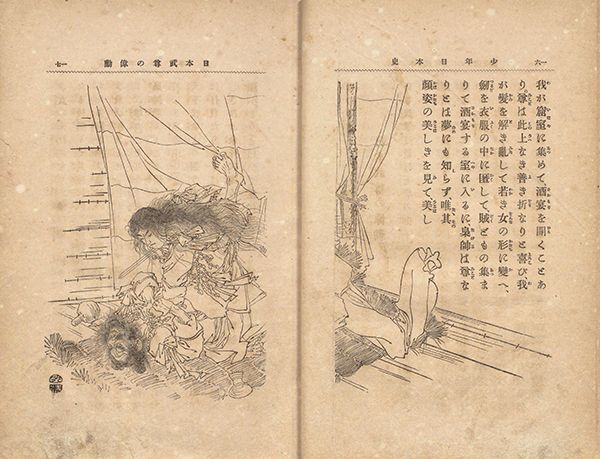 少年日本史
一六
我が窟室に集めて酒宴を開くことあ
り、尊は此上なき善き折なりと喜び、我
が髮を解き亂して若き女の形に變へ、
劒を衣服の中に匿して賊どもの集ま
りて酒宴する室に入るに梟帥は尊な
りとは夢にも知らず唯其
顏姿の美しきを見て美し
日本武尊の偉勳
一七